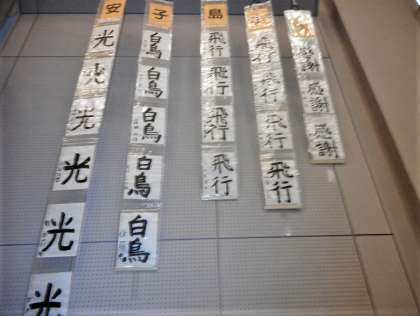 安
光
光
光
光
光
光
子
白鳥
白鳥
白鳥
白鳥
白鳥
島
飛行
飛行
飛行
飛行
飛行
飛行
飛行
飛行
感謝
感謝
感謝